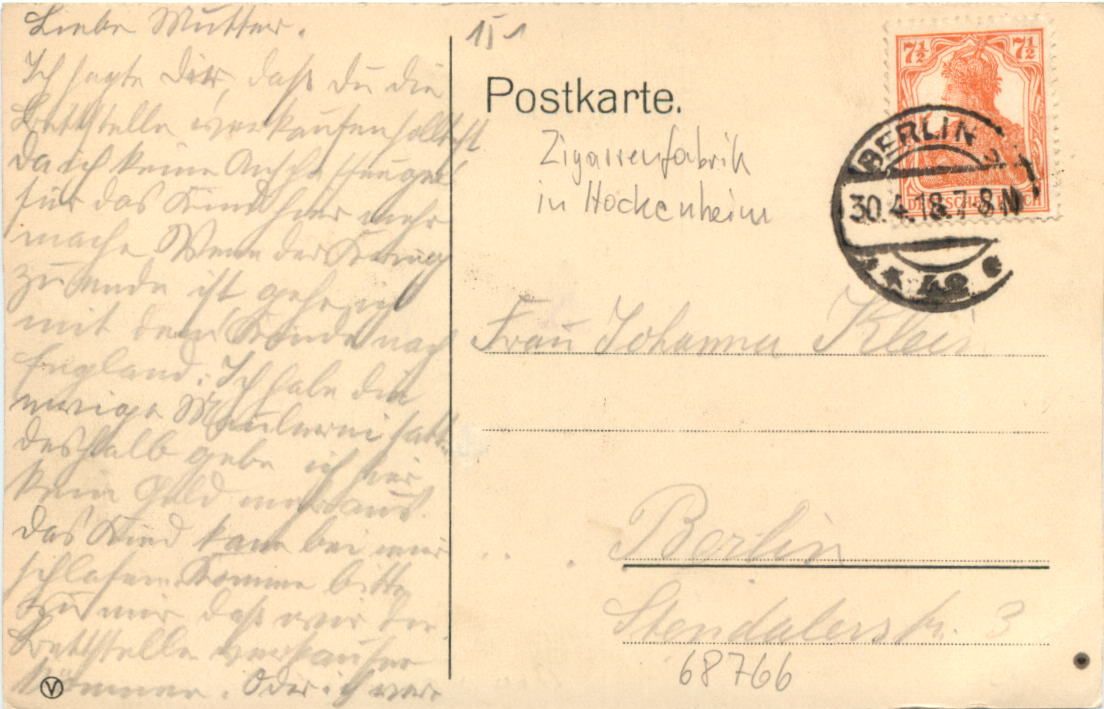 Liebe Mutter.
Ich sagte Dir, daß du die
Bettstelle verkaufen solltest
da ich keine Anschaffungen
für das Kind hier mehr
mache. Wenn der Krieg
zu ende ist gehe ich
mit dem Kinde nach
England. Ich habe die
ewige Maulerei satt
deshalb gebe ich hier
kein Geld mehr aus.
Das Kind kann bei mir
schlafen. Komme bitte
zu mir daß wir die
Bettstelle verkaufen
können. Oder ich
V
Postkarte.
Zigarrenfabrik
in Hockenheim
7½ 7½
DEUTSCHES REICH
BERLIN
30.4.18.7-8N
* 42 *
Frau Johanna Klein
Berlin
Stendalerstr. 3
68766